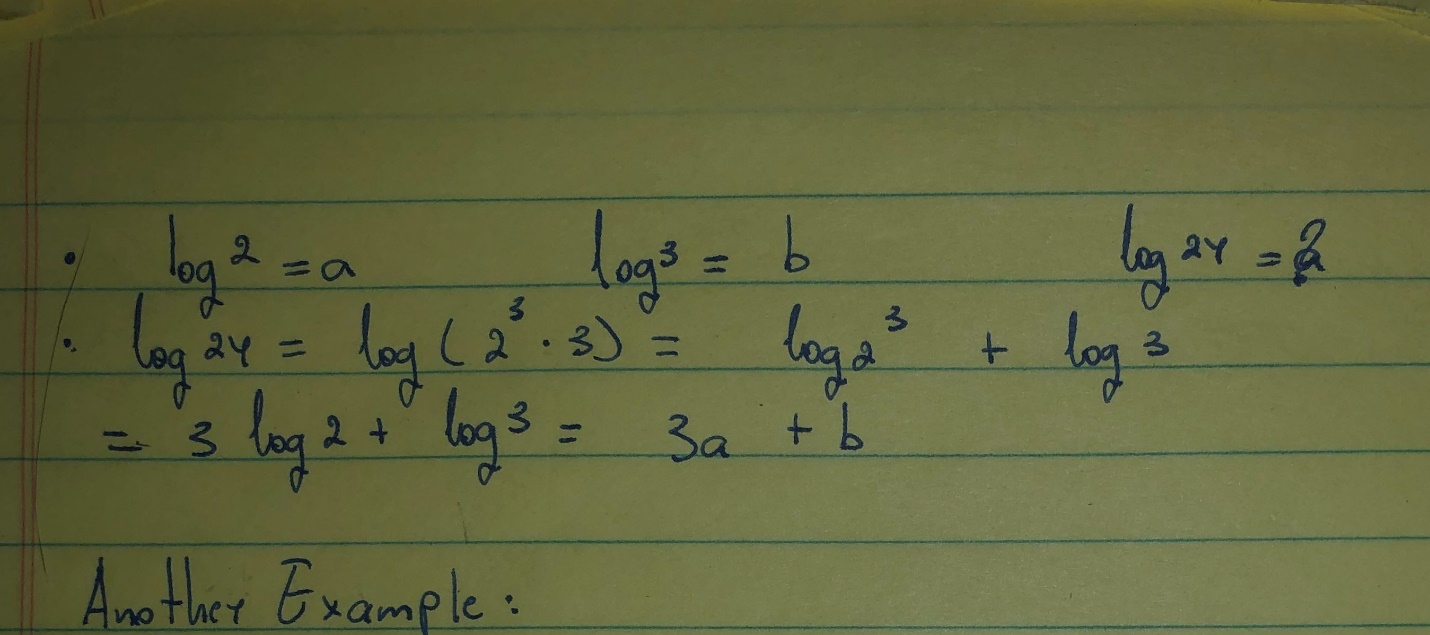 · log 2 = a log 3 = b log 24 = ?
· log 24 = log ( 2³ · 3 ) = log 2³ + log 3
= 3 log 2 + log 3 = 3a + b
Another Example :